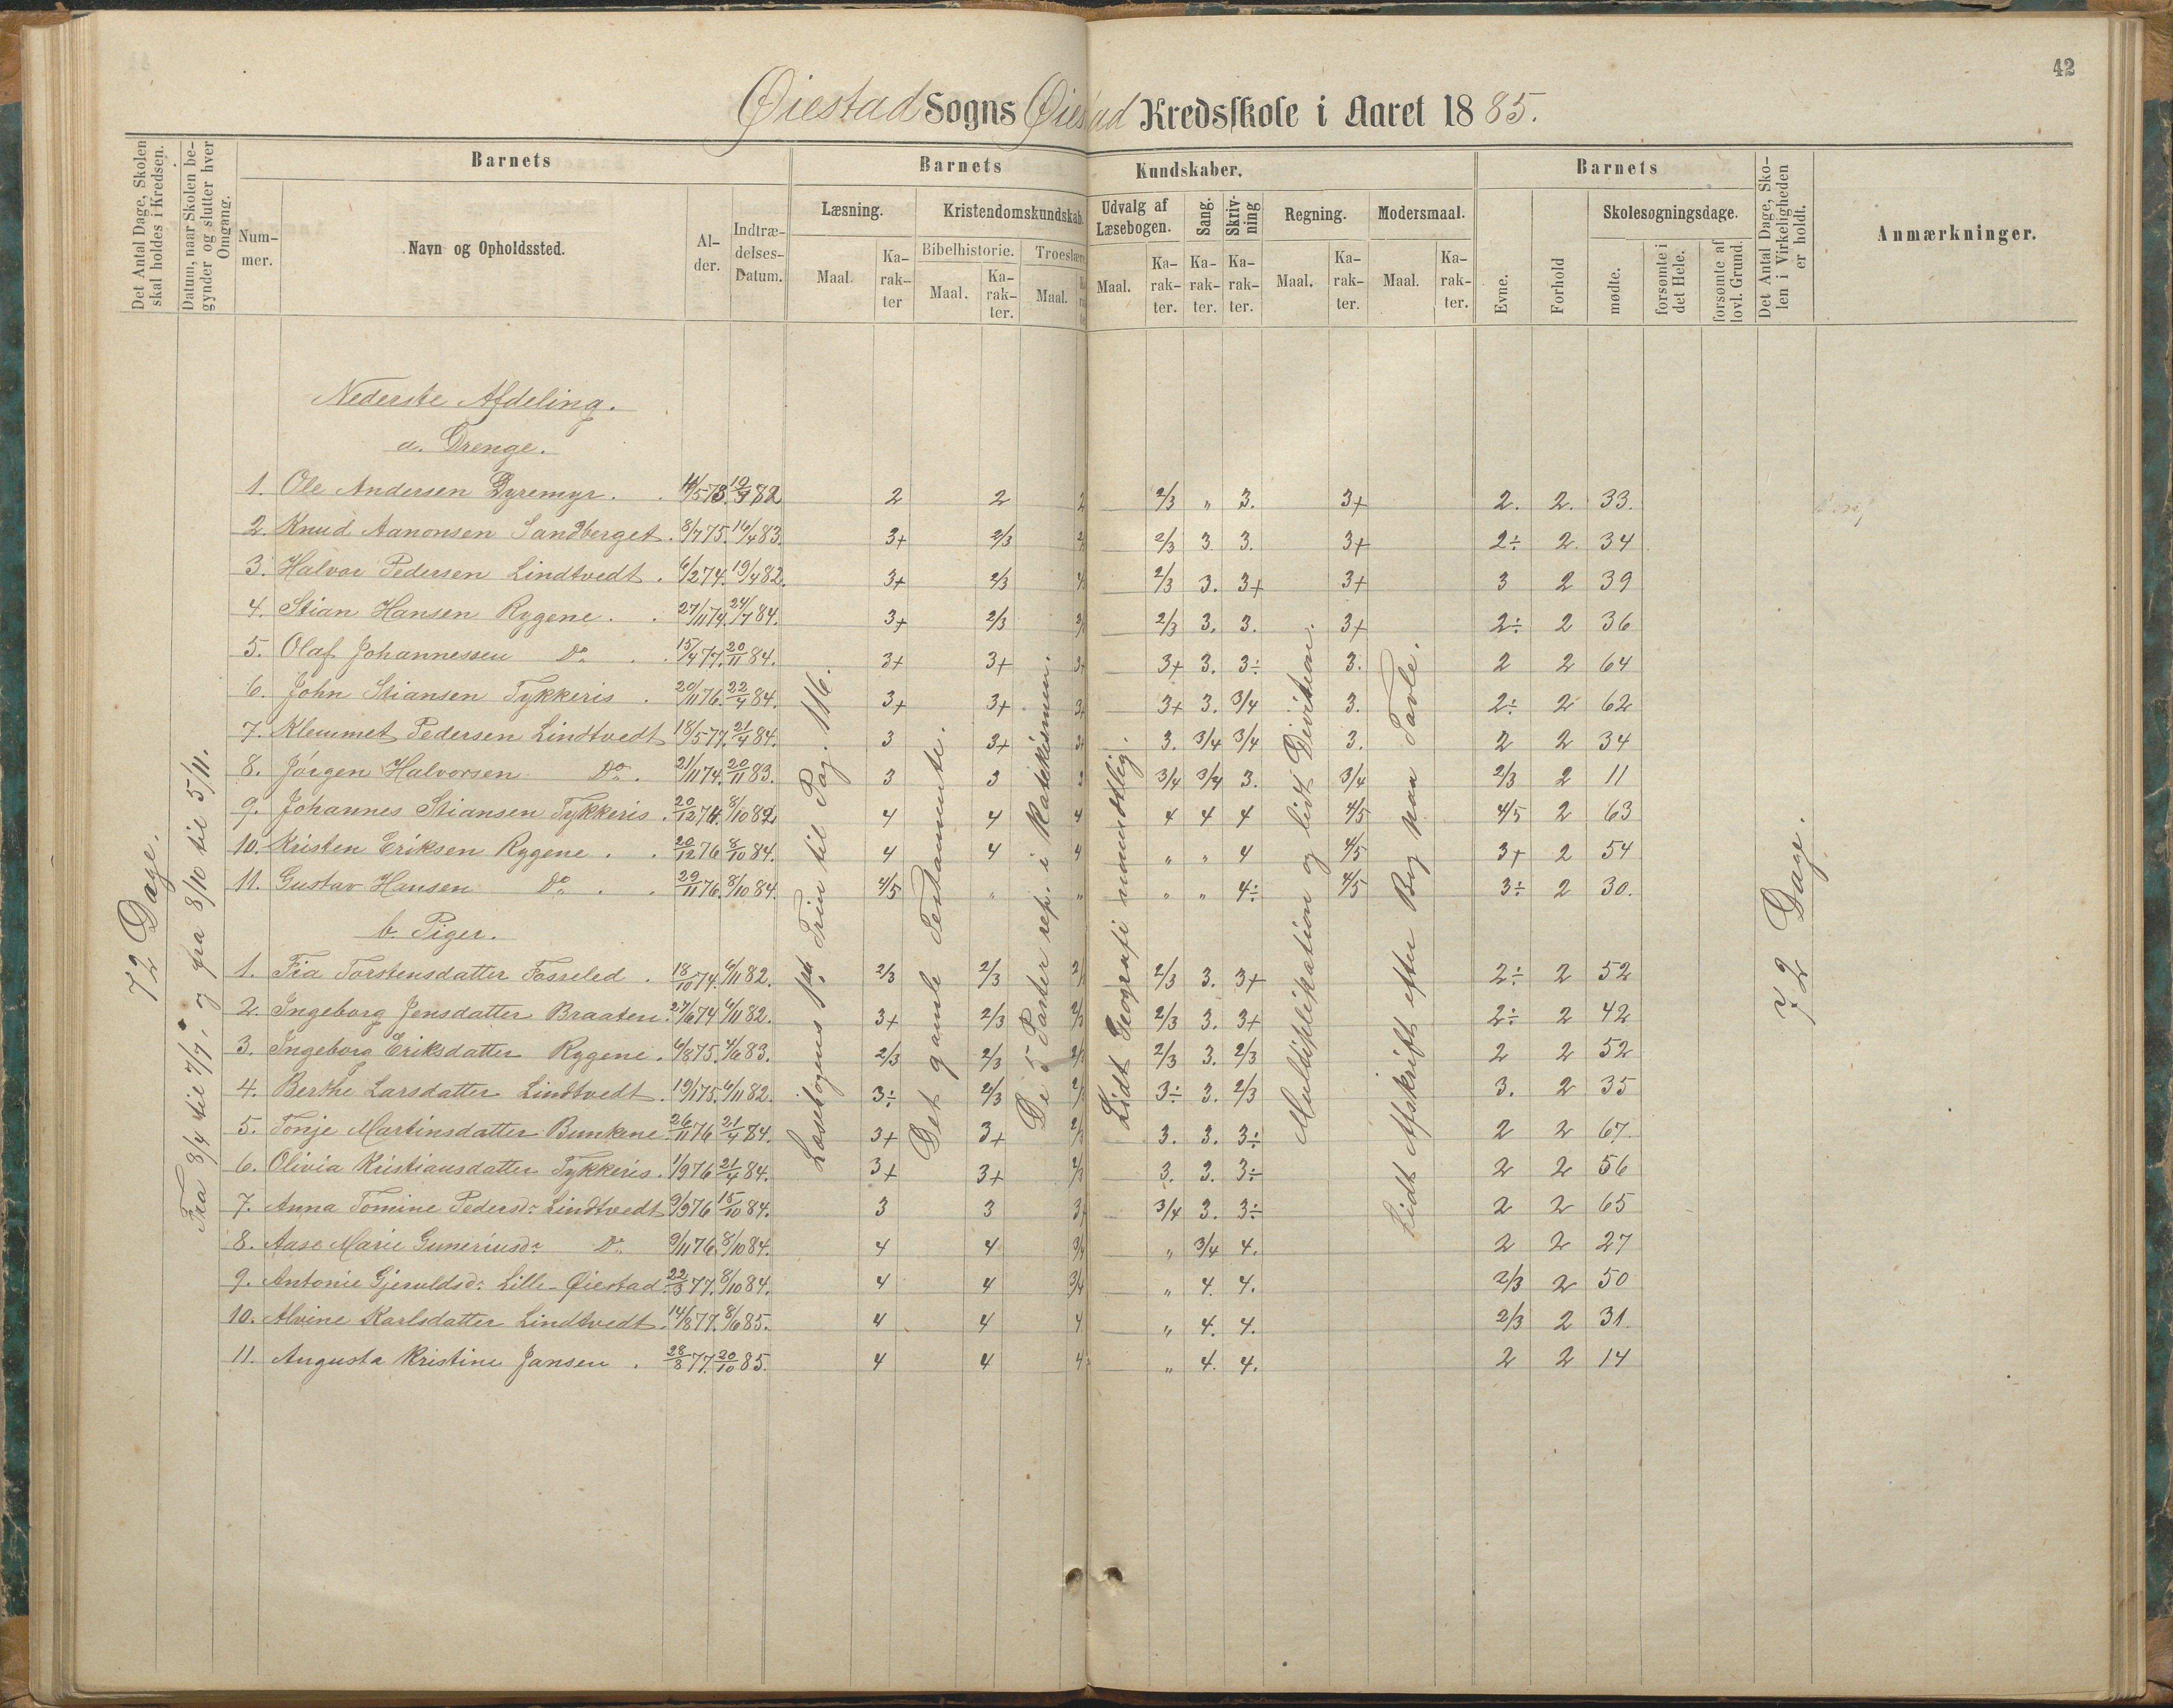 42
Øiestad Sogns Øiestad Kredsskole i Aaret 1885.
Det Antal Dage, Skolen skal holdes i Kredsen.
Datum, naar Skolen begynder og slutter hver Omgang.
Barnets
Barnets Kundskaber.
Barnets
Det Antal Dage, Skolen i Virkeligheden er holdt.
Anmærkninger.
Nummer.
Navn og Opholdssted.
Alder.
Indtrædelses-Datum.
Læsning.
Kristendomskundskab.
Udvalg af Læsebogen.
Sang.
Skrivning
Regning.
Modersmaal.
Evne.
Forhold
Skolesøgningsdage.
Bibelhistorie.
Troeslære
Maal. Karakter Maal. Karakter. Maal. Maal. Karakter. Karakter. Karakter. Maal. Karakter. Maal. Karakter.
mødte.
forsømte i det Hele.
forsømte af lovl. Grund.
72 Dage.
Fra 3/4 til 7/7, og fra 8/10 til 5/11.
Læsebogens 1ste Trin til Pag. 116.
Det gamle Testamente.
De 5 Parter rep. i Katekismen.
Lidt Geografi mundtlig.
Multiplikation og lidt Division.
Lidt Afskrift efter Bog paa Tavle.
72 Dage.
Nederste Afdeling.
a. Drenge.
1. Ole Andersen Dyremyr. 2 2 2 2/3 " 3. 3+ 2. 2. 33.
2. Knud Aanonsen Sandberget. 8/7 75. 16/4 83. 3+ 2/3 2/3 3 3. 3+ 2÷ 2. 34
3. Halvor Pedersen Lindtvedt. 6/2 74. 19/4 82. 3+ 2/3 2/3 3. 3+ 3+ 3 2 39
4. Stian Hansen Rygene. 27/11 74. 24/7 84. 3+ 2/3 2/3 3. 3. 3+ 2÷ 2 36
5. Olaf Johannessen Do. 15/4 77. 20/11 84. 3+ 3+ 3+ 3+ 3. 3÷ 3. 2 2 64
6. John Stiansen Tykkeris. 20/11 76. 22/4 84. 3+ 3+ 3+ 3+ 3. 3/4 3. 2÷ 2 62
7. Klemmet Pedersen Lindtvedt 18/5 77. 21/4 84. 3 3+ 3+ 3. 3/4 3/4 3. 2 2 34
8. Jørgen Halvorsen Do. 21/11 74. 20/11 83. 3 3 3 3/4 3/4 3. 3/4 2/3 2 11
9. Johannes Stiansen Tykkeris. 20/12 74. 8/10 82. 4 4 4 4 4 4 4/5 4/5 2 63
10. Kristen Eriksen Rygene. 20/12 76 8/10 84. 4 4 4 " " 4 4/5 3+ 2 54
11. Gustav Hansen Do. 29/11 76. 8/10 84. 4/5 " " " " 4÷ 4/5 3÷ 2 30.
b. Piger.
1. Fia Torstensdatter Fosseled. 18/10 74. 6/11 82. 2/3 2/3 2/3 2/3 3. 3+ 2÷ 2 52
2. Ingeborg Jensdatter Braaten. 27/6 74 6/11 82. 3+ 2/3 2/3 2/3 3. 3+ 2÷ 2 42
3. Ingeborg Eriksdatter Rygene. 6/8 75. 4/6 83. 2/3 2/3 2/3 2/3 3. 2/3 2 2 52
4. Berthe Larsdatter Lindtvedt. 19/1 75. 6/11 82. 3÷ 2/3 2/3 3÷ 3. 2/3 3. 2 35
5. Tonje Martinsdatter Bunkene. 26/11 76 21/4 84. 3+ 3+ 2/3 3. 3. 3÷ 2 2 67.
6. Olivia Kristiansdatter Tykkeris. 1/9 76 21/4 84. 3+ 3+ 2/3 3. 3. 3÷ 2 2 56
7. Anna Tomine Pedersdr. Lindtvedt 9/9 76 15/10 84. 3 3 3+ 3/4 3. 3÷ 2 2 65
8. Aase Marie Guneriusdr. Do. 9/11 76. 8/10 84. 4 4 3/4 " 3/4 4. 2 2 27
9. Antonie Gjeruldsdr. Lille-Øiestad. 22/3 77. 8/10 84. 4 4 3/4 " 4. 4. 2/3 2 50
10. Alvine Karlsdatter Lindtvedt. 14/8 77. 8/6 85. 4 4 4 " 4. 4. 2/3 2 31.
11. Augusta Kristine Jansen. 28/8 77. 20/10 85. 4 4 4 " 4. 4. 2 2 14